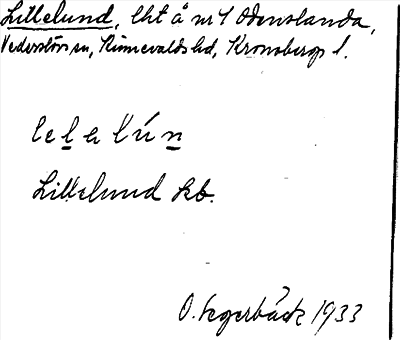 Lillelund, lht å nr 1 Odenslanda,
Vederslövs sn, Kinnevalds hd, Kronobergs l.
lelalún
Lillelund kb.
O. Segerbäck 1933